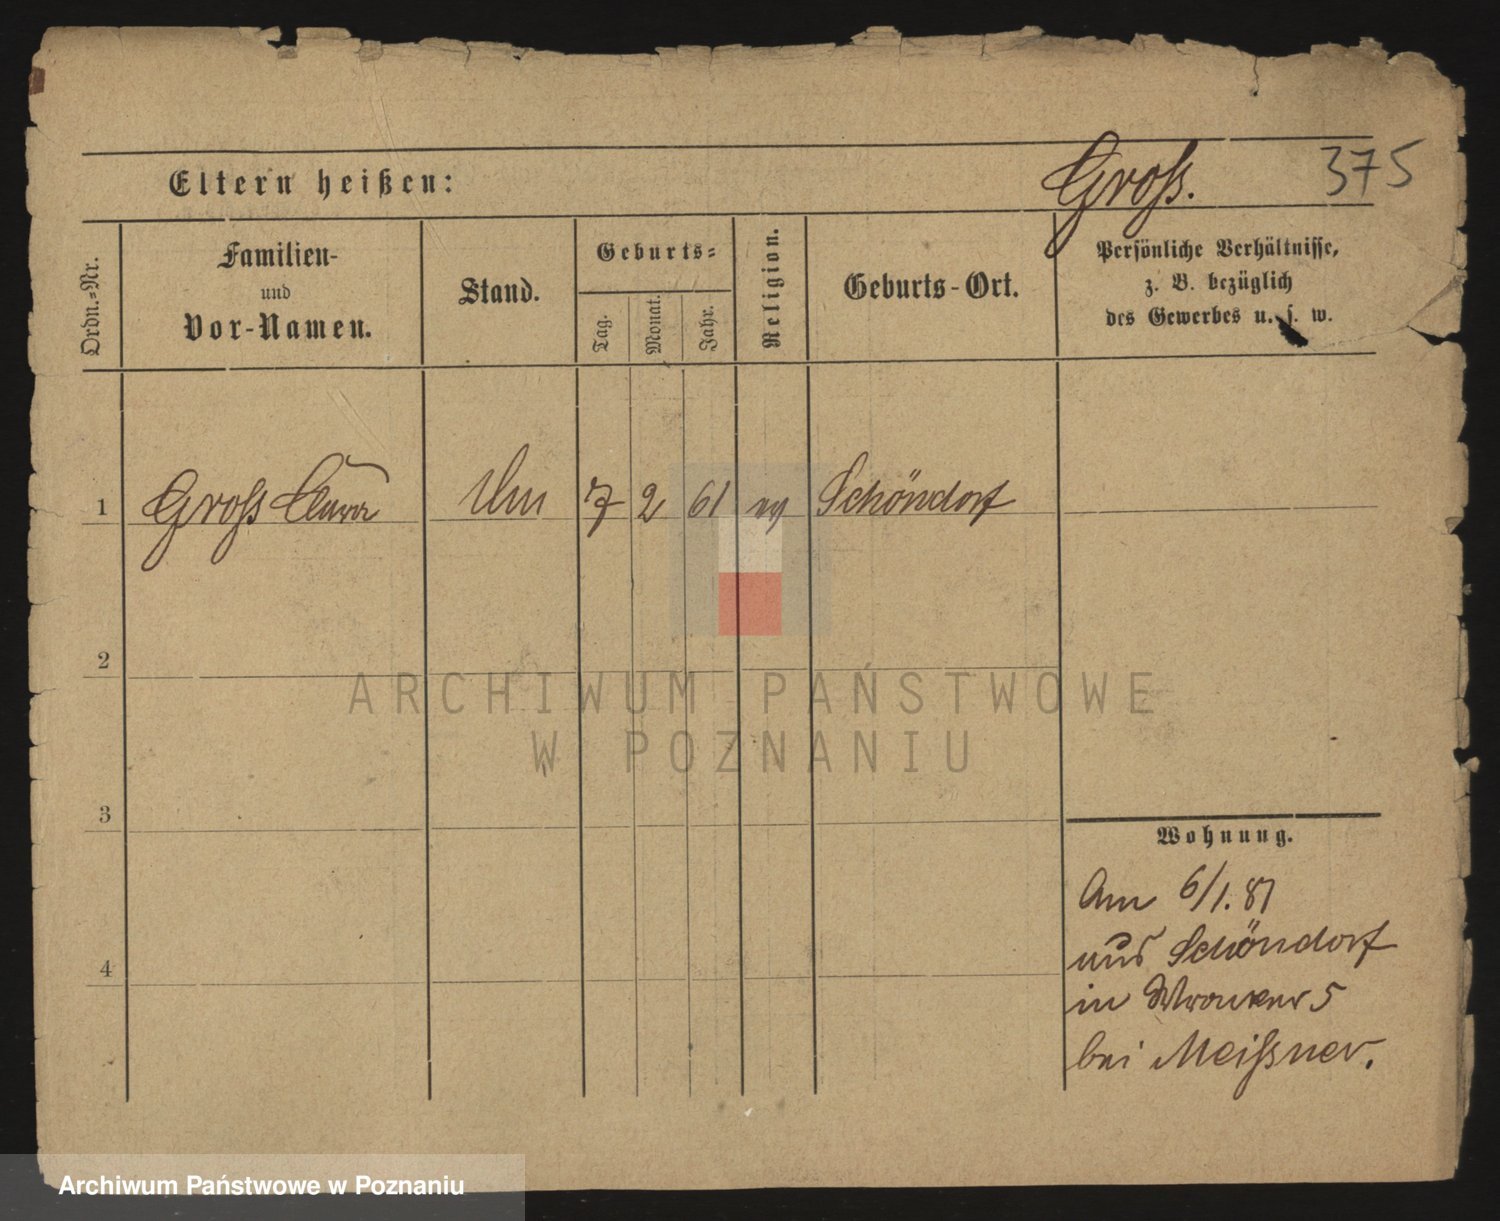 Groß. 375
Eltern heißen:
Ordn.-Nr.
Familien-
und
Vor-Namen.
Stand.
Geburts-
Tag.
Monat.
Jahr.
Religion.
Geburts-Ort.
Persönliche Verhältnisse,
z. B. bezüglich
des Gewerbes u. s. w.
1 Groß Clara 7 2 61 ev Schöndorf
2
3
4
Wohnung.
Am 6/1. 81
aus Schöndorf
in Wronker 5
bei Meißner.
ARCHIWUM PAŃSTWOWE
W POZNANIU
Archiwum Państwowe w Poznaniu